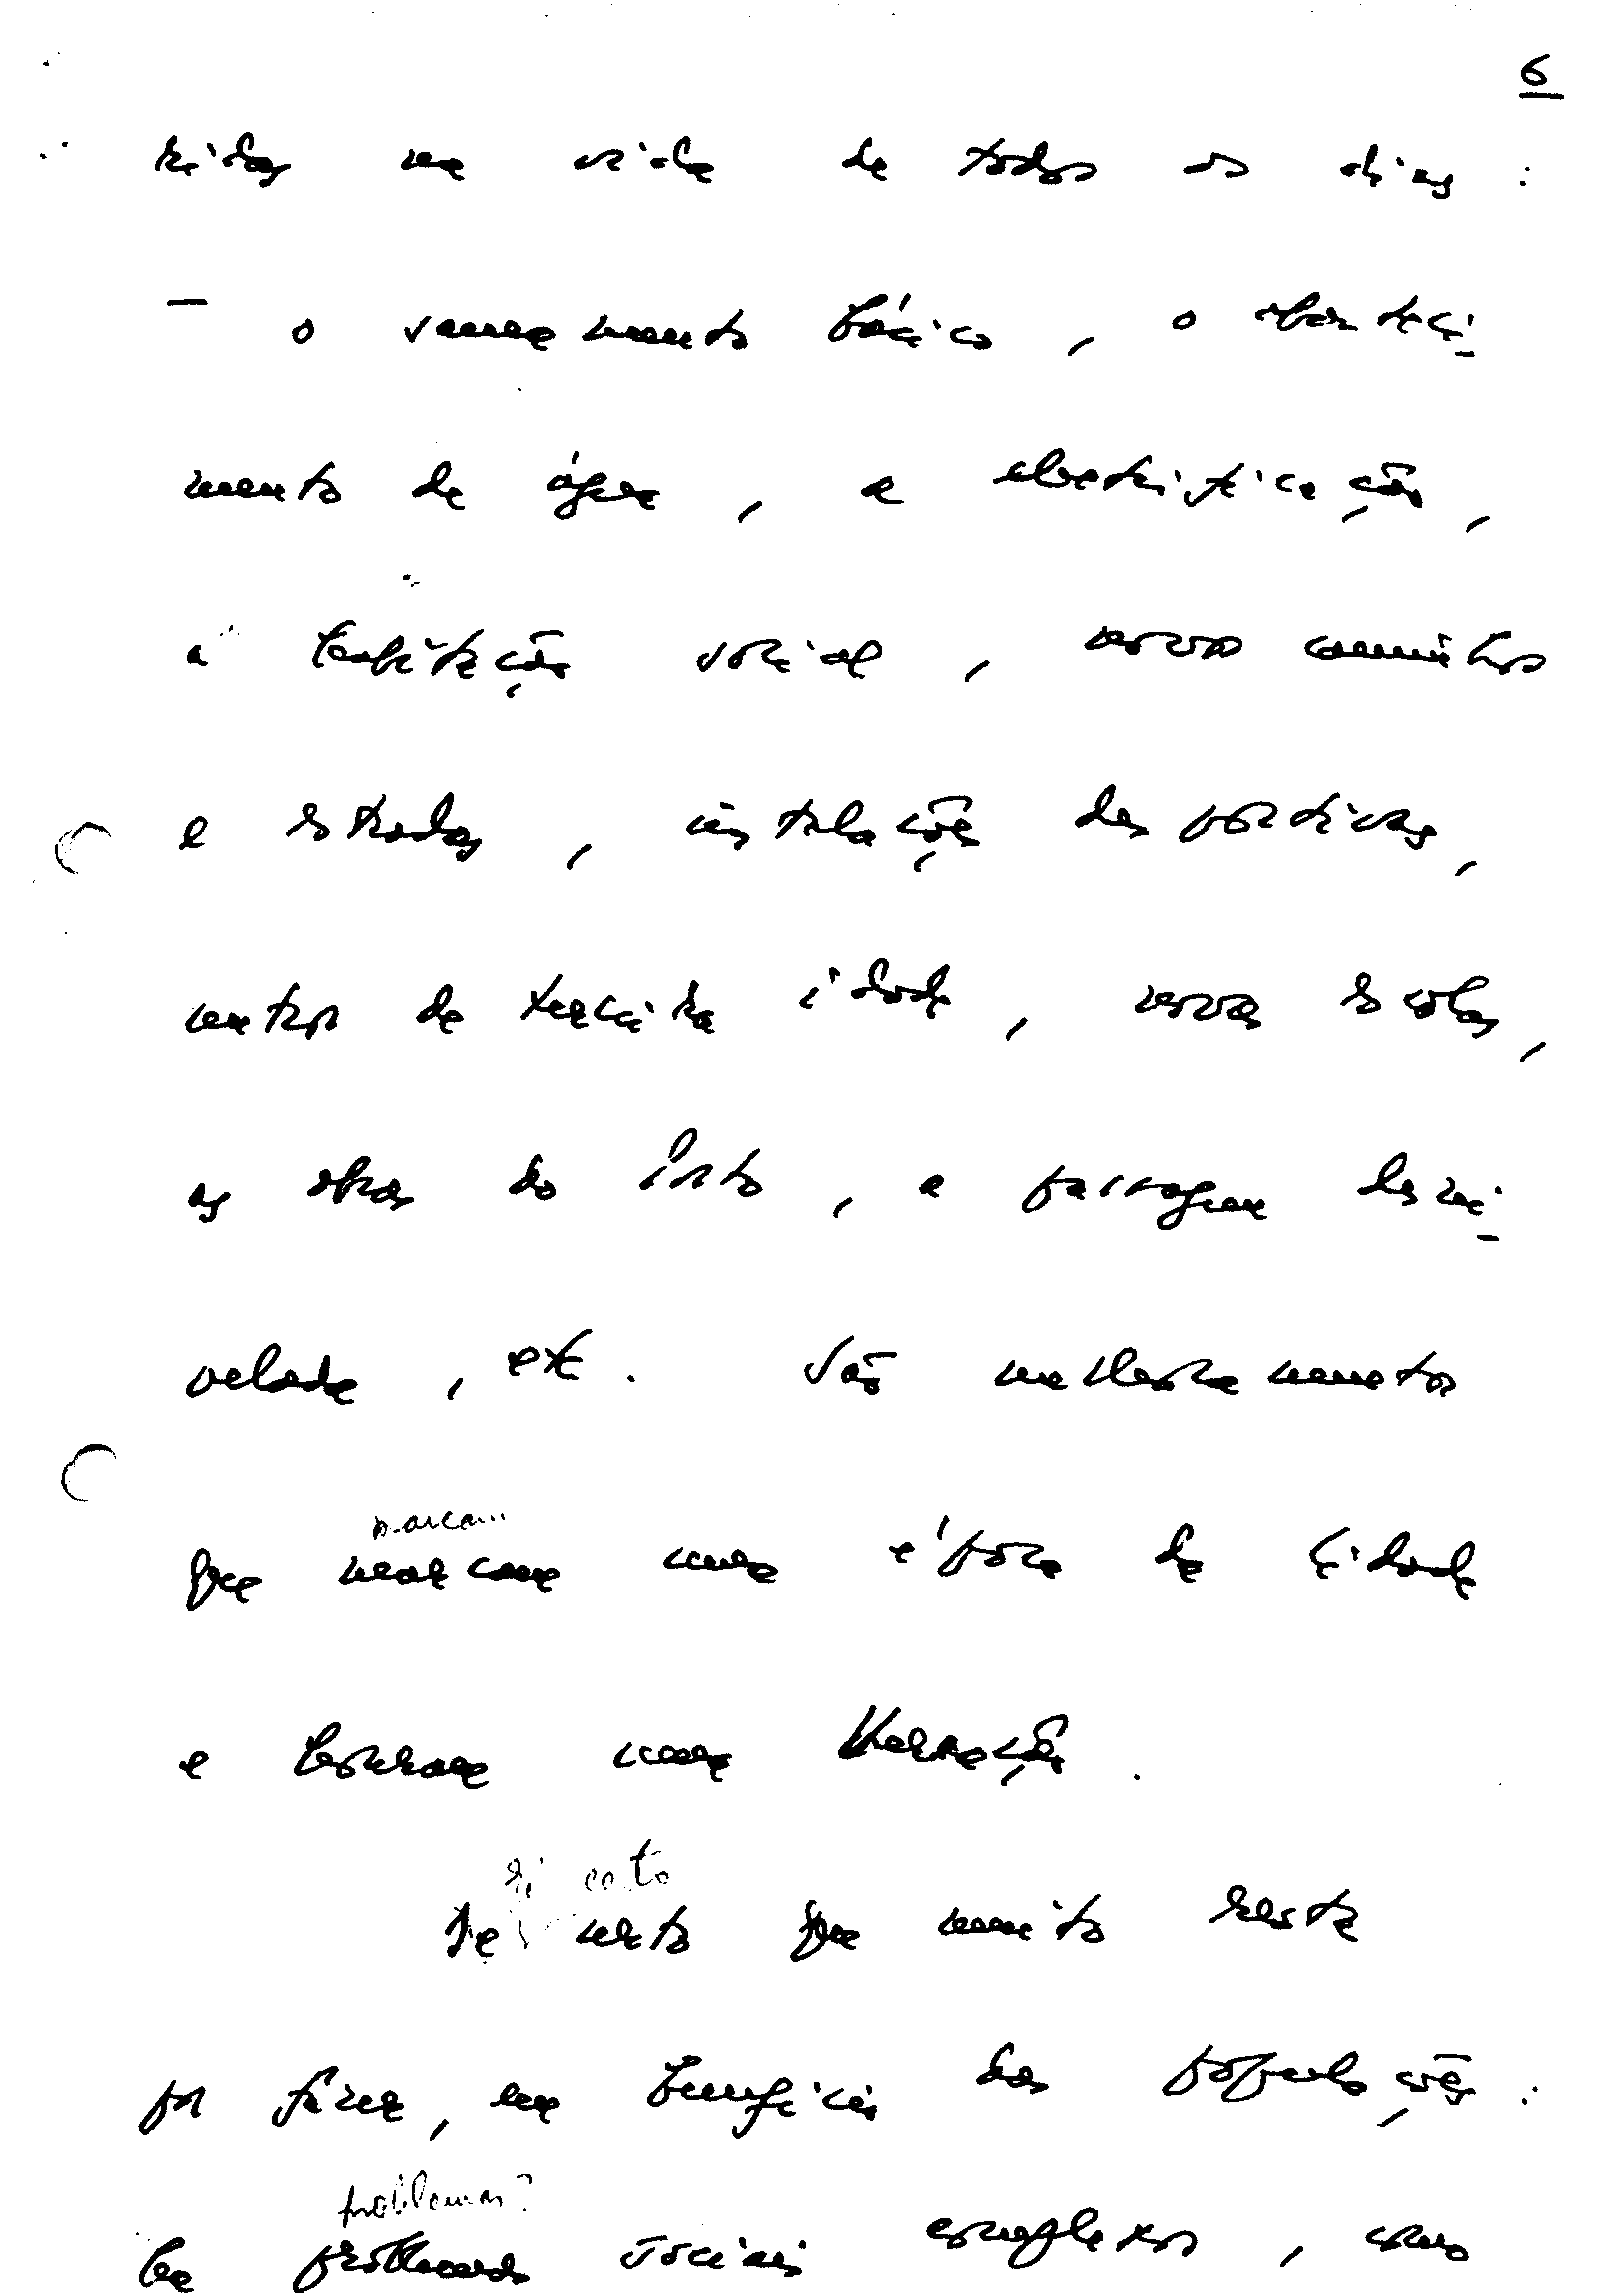 6
tidas na vida de todos os dias :
— o saneamento básico, o abasteci-
mento de água, a electrificação,
a habitação social, novos caminhos
e estradas, instalações desportivas,
centros de terceira idade, novas escolas,
as obras do Porto, a passagem desni-
velada, etc. São melhoramentos
marcam
que marcam uma época da Cidade
e honram uma Vereação.
certo
certo que muito resta
por fazer, em benefício das populações :
problemas?
há problemas sociais complexos, como